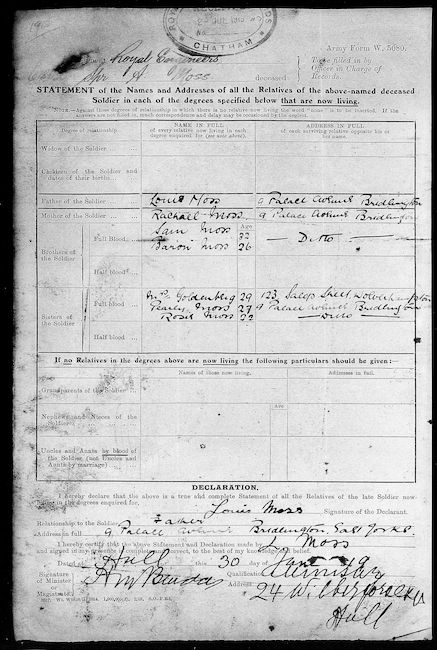 ROYAL
CHATHAM
Army Form W. 5080.
Royal Engineers
To be filled in by
Officer in Charge of
Records.
Spr A Moss deceased
STATEMENT of the Names and Addresses of all the Relatives of the above-named deceased
Soldier in each of the degrees specified below that are now living.
NOTE.—Against those degrees of relationship in which there is no relative now living the word "none" is to be inserted. If the
answers are not filled in, much correspondence and delay may be occasioned by the neglect.
Degree of relationship. NAME IN FULL ADDRESS IN FULL
of every relative now living in each of each surviving relative opposite his or
degree enquired for (see note above). her name.
Widow of the Soldier
Children of the Soldier and
dates of their births
Father of the Soldier Louis Moss 9 Palace Avenue Bridlington
Mother of the Soldier Rachael Moss 9 Palace Avenue Bridlington
Age
Brothers of the Soldier Full Blood Sam Moss 32 Ditto
Baron Moss 26
Half blood
Sisters of the Soldier Full blood Mrs Goldenberg 29 123 Street Wolverhampton
Pearly Moss 27 9 Palace Avenue Bridlington
Rosie Moss 22 Ditto
Half blood
If no Relatives in the degrees above are now living the following particulars should be given:—
Names of those now living. Addresses in full.
Grandparents of the Soldier
Age
Nephews and Nieces of the
Soldier
Uncles and Aunts by blood of
the Soldier (not Uncles and
Aunts by marriage)
DECLARATION.
I hereby declare that the above is a true and complete Statement of all the Relatives of the late Soldier now
living in the degrees enquired for.
Louis Moss Signature of the Declarant.
Relationship to the Soldier Father
Address in full 9 Palace Avenue Bridlington East Yorks.
I hereby certify that the above Statement and Declaration made by L Moss
and signed in my presence is complete and correct, to the best of my knowledge and belief.
Dated at Hull this 30 19
Signature
of Minister
or
Magistrate
Qualification Minister
Address 24 Wilberforce
Hull